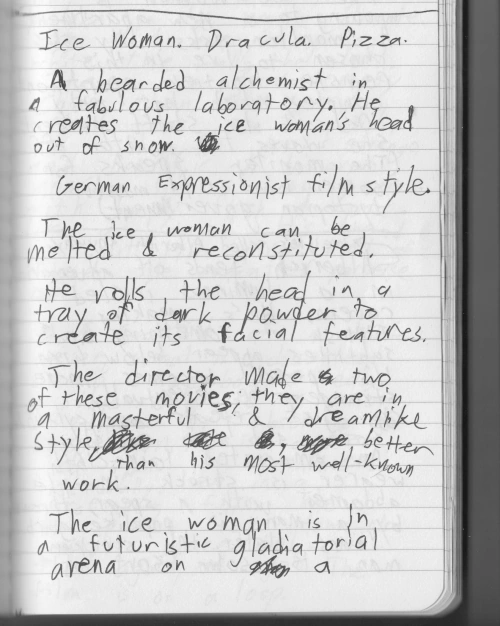 Ice Woman. Dracula. Pizza.
A bearded alchemist in
a fabulous laboratory. He
creates the ice woman's head
out of snow.
German Expressionist film style.
The ice woman can be
melted & reconstituted.
He rolls the head in a
tray of dark powder to
create its facial features.
The director made two
of these movies; they are in
a masterful & dreamlike
style, better
than his most well-known
work.
The ice woman is in
a futuristic gladiatorial
arena on a